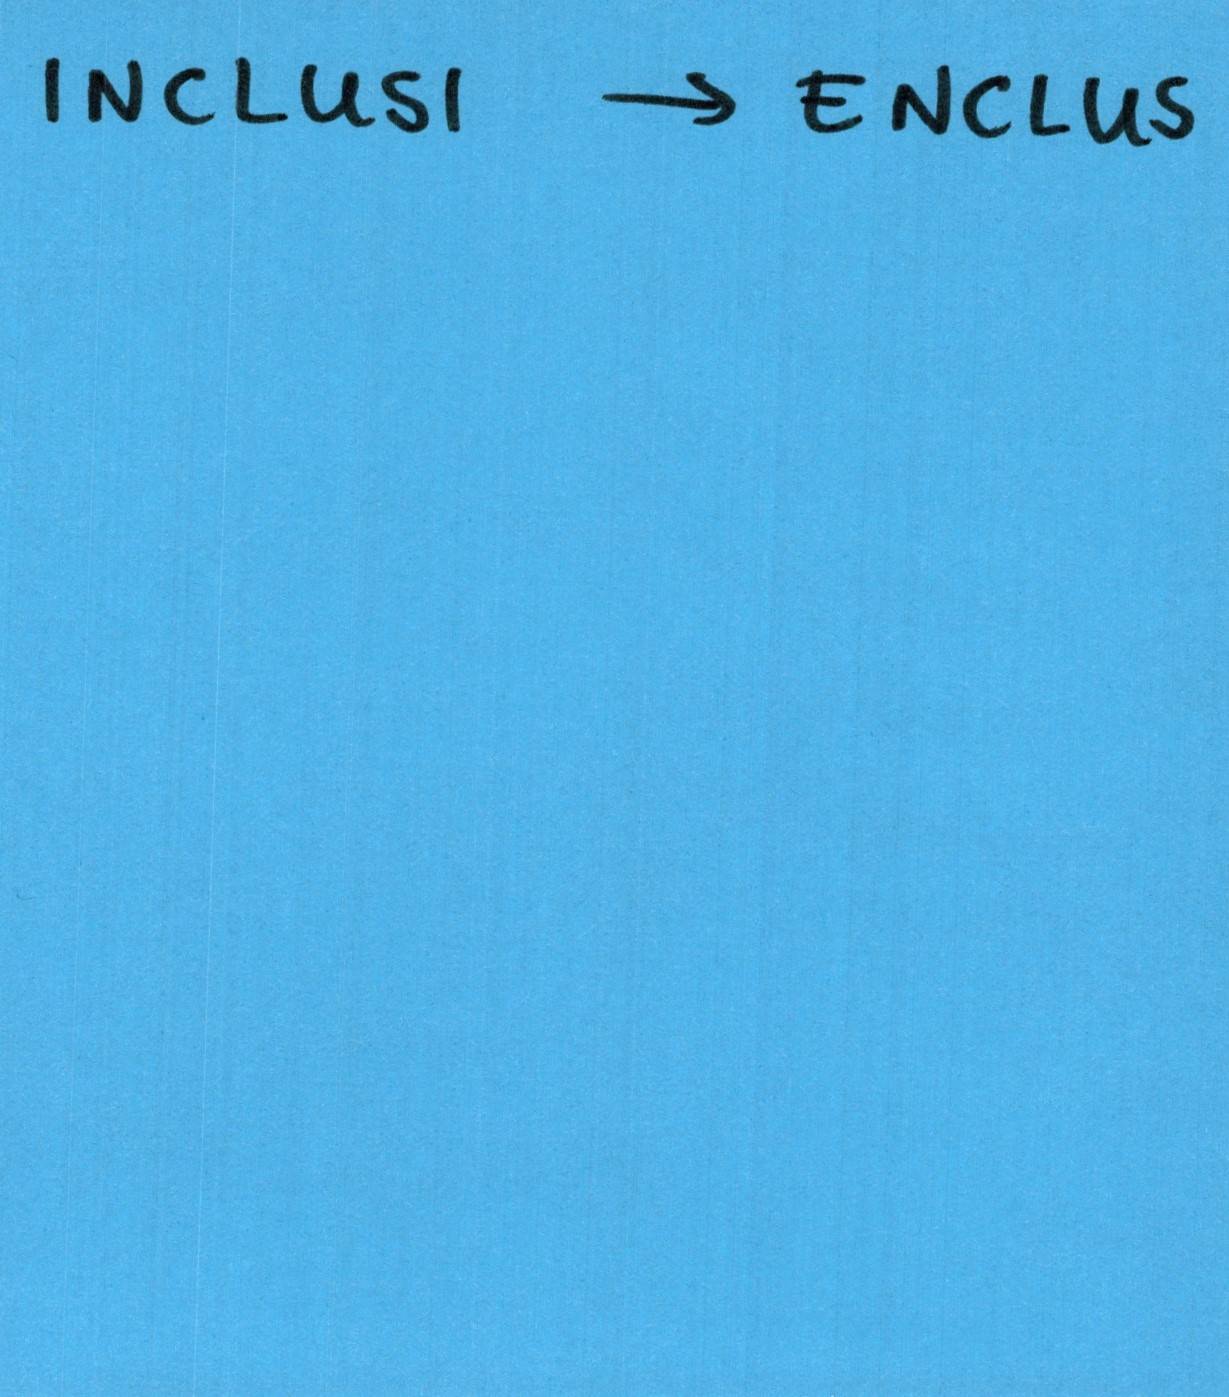 INCLUSI → ENCLUS